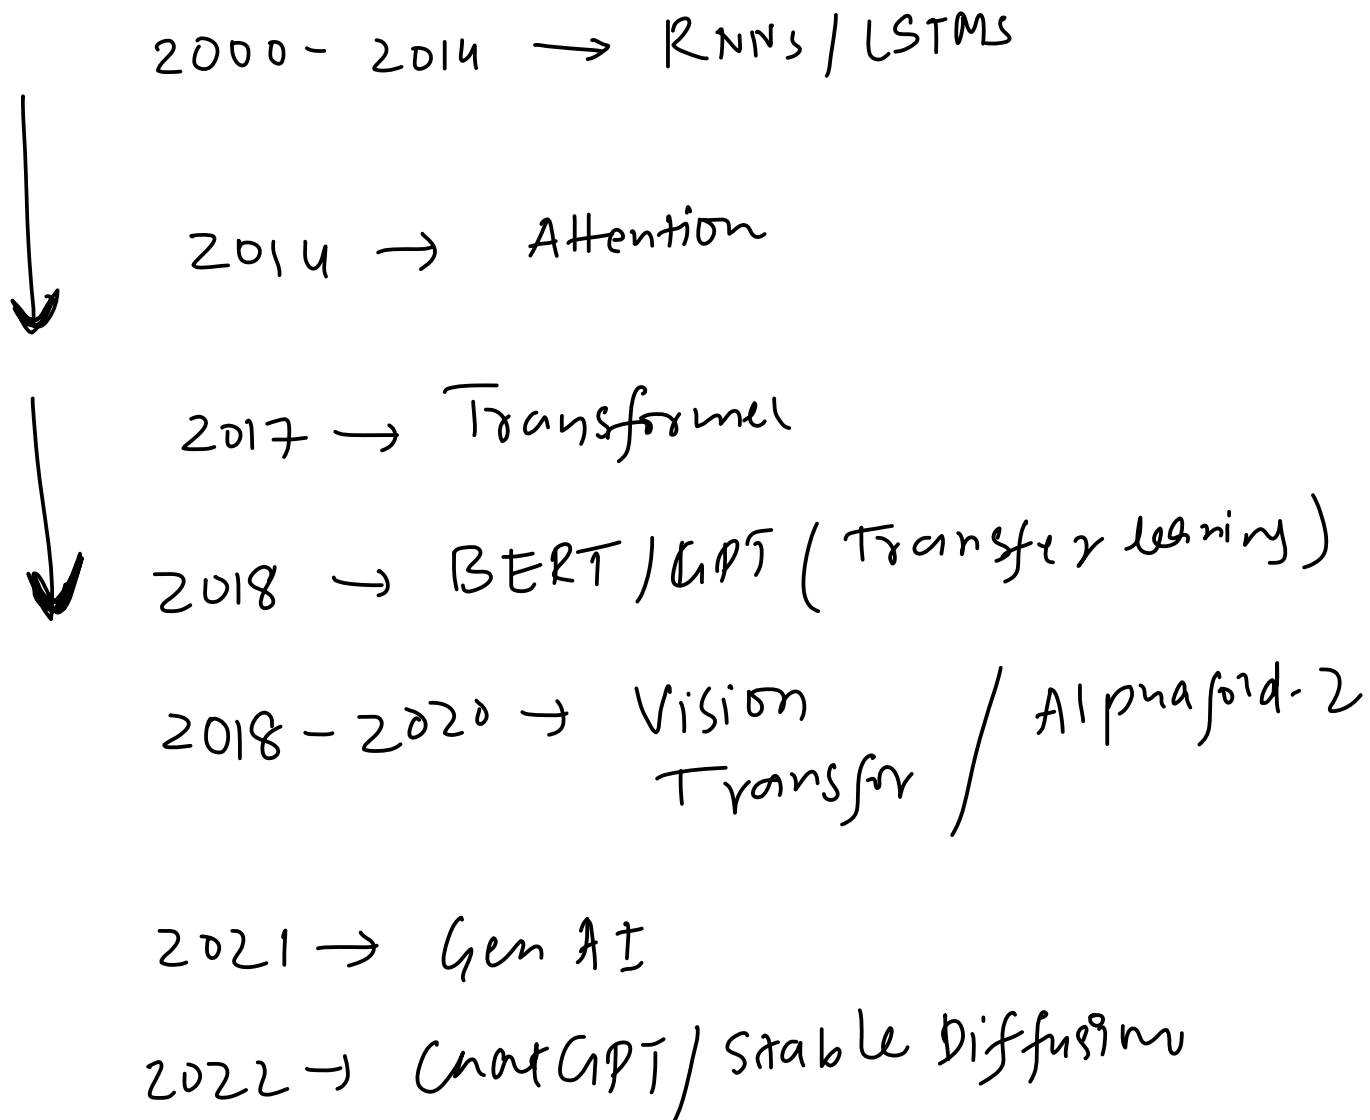 2000 - 2014 → RNNs / LSTMs
2014 → Attention
2017 → Transformer
2018 → BERT / GPT ( Transfer learning )
2018 - 2020 → Vision Transfor / Alphafold-2
2021 → Gen AI
2022 → ChatGPT / Stable Diffusion